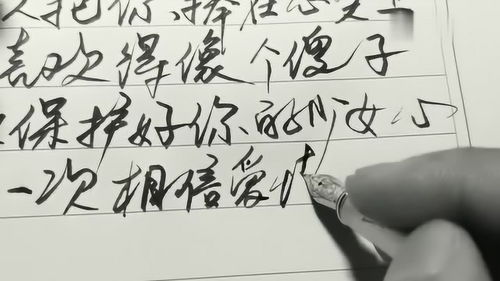 人把你捧在心尖上
喜欢得像个傻子
保护好你的少女心
一次相信爱情